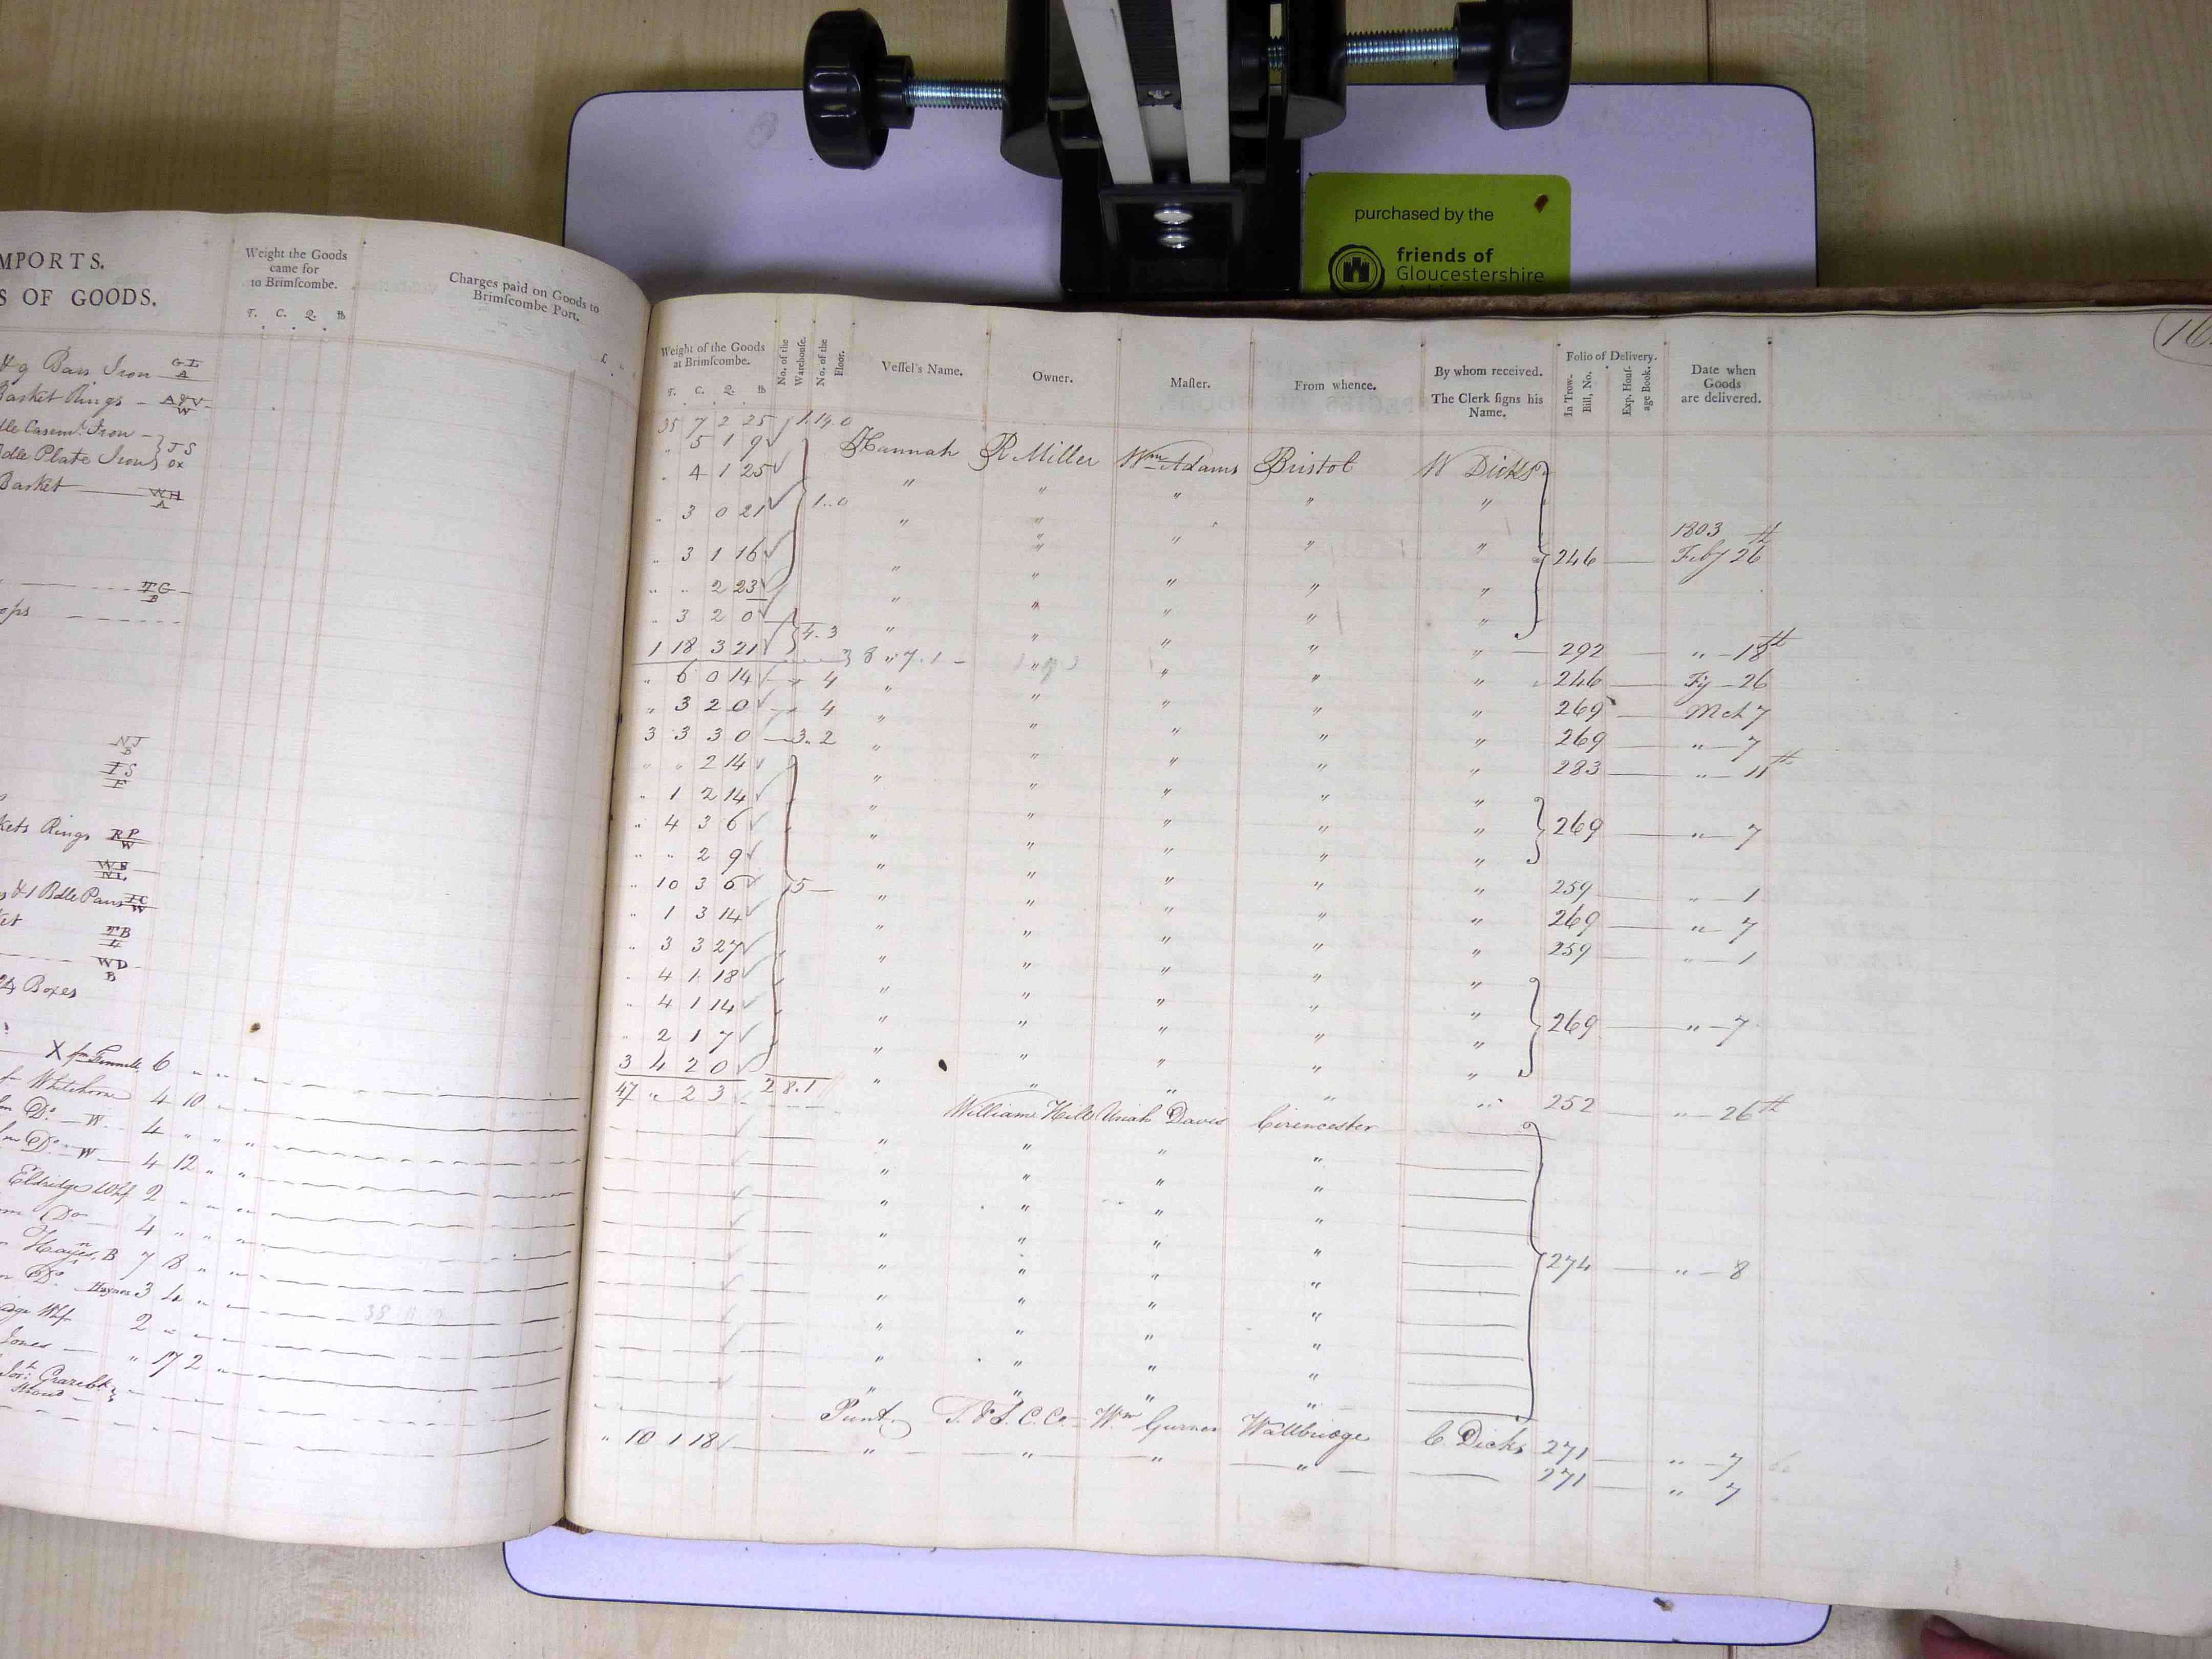 purchased by the
friends of
Gloucestershire
MPORTS.
S OF GOODS.
Weight the Goods
came for
to Brimſcombe.
T. C. Q. lb
Charges paid on Goods to
Brimſcombe Port.
£
& 9 Bars Iron GI A
Basket Rings - A&V W
dle Casemt. Iron - } JS
dle Plate Iron } ox
Basket WH A
TG B
ops
NJ B
IS F
kets Rings RP W
WB NL
s & 1 Bdle Pans IC W
ket TB L
WD B
Boxes
X fm Gunnell 6 " " "
fm Whitehorn 4 10
fm Do. - W 4 " " "
fm Do. - W 4 12 " "
Eldridge Whf 2 " " "
m Do 4 " " "
Haynes, B 7 18 " "
Do. Haynes 3 4 " "
idge Whf 2 " " "
Jones " 17 2 "
Grazebk
Stroud
16
Weight of the Goods
at Brimſcombe.
T. C. Q. lb
No. of the Warehouſe.
No. of the Floor.
Veſſel's Name.
Owner.
Maſter.
From whence.
By whom received.
The Clerk ſigns his
Name.
Folio of Delivery.
In Trow-Bill, No.
Exp. Houſ-age Book.
Date when
Goods
are delivered.
35 7 2 25 1.14.0
" 5 1 9 Hannah R Miller Wm Adams Bristol W Dicks
" 4 1 25 " " " " "
" 3 0 21 1..0 " " " " "
1803
" 3 1 16 " " " " " 246 Feby 26th
" " 2 23 " " " " "
" 3 2 0 4.3 " " " " "
1 18 3 21 3 8 " 7.1 " " " " 292 " 18th
" 6 0 14 4 " " " " " 246 Fy 26
" 3 2 0 4 " " " " " 269 Mch 7
3 3 3 0 3.2 " " " " " 269 " 7
" " 2 14 " " " " " 283 " 11th
" 1 2 14 " " " " "
" 4 3 6 " " " " " 269 " 7
" " 2 9 " " " " "
" 10 3 6 5 " " " " " 259 " 1
" 1 3 14 " " " " " 269 " 7
" 3 3 27 " " " " " 259 " 1
" 4 1 18 " " " " "
" 4 1 14 " " " " " 269 " 7
" 2 1 7 " " " " "
3 4 2 0 " " " " " 252 " 26th
47 " 2 3 2 8.1
William Hill Uriah Davis Cirencester
" " " "
" " " "
" " " "
" " " "
" " " " 274 " 8
" " " "
" " " "
" " " "
" " " "
Punt T. & S. C. Co. Wm Gurner Wallbridge C. Dicks 271 " 7
" 10 1 18 " " " " 271 " 7